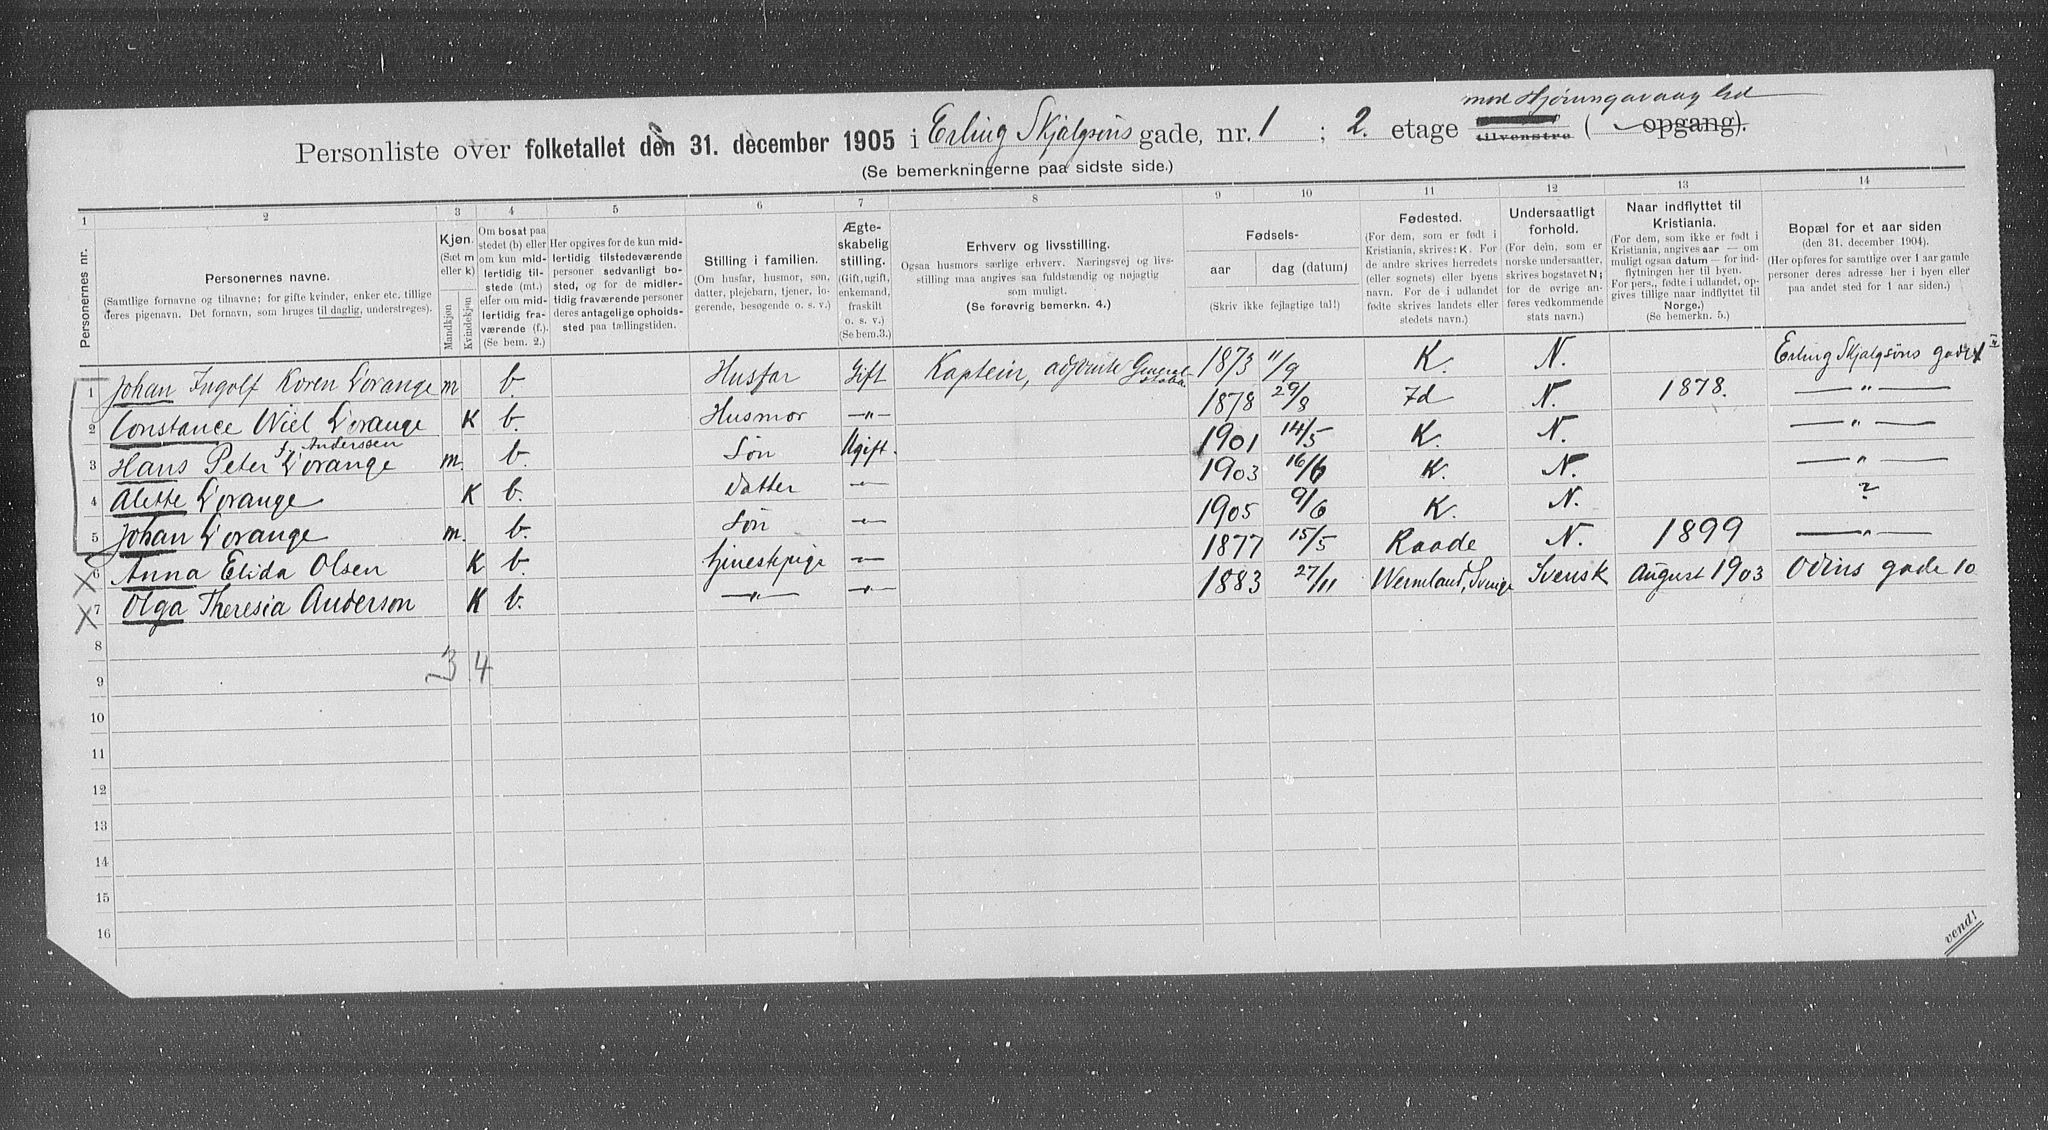 mod Hjørungavaag
Personliste over folketallet den 31. december 1905 i Erling Skjalgsøns gade, nr. 1 ; 2. etage tilvenstre ( opgang).
(Se bemerkningerne paa sidste side.)
1 2 3 4 5 6 7 8 9 10 11 12 13 14
Personernes nr.
Personernes navne.
(Samtlige fornavne og tilnavne; for gifte kvinder, enker etc. tillige
deres pigenavn. Det fornavn, som bruges til daglig, understreges).
Kjøn.
(Sæt m
eller k)
Mandkjøn
Kvindekjøn
Om bosat paa
stedet (b) eller
om kun mid-
lertidig til-
stede (mt.)
eller om mid-
lertidig fra-
værende (f.).
(Se bem. 2.)
Her opgives for de kun mid-
lertidig tilstedeværende
personer sedvanligt bo-
sted, og for de midler-
tidig fraværende personer
deres antagelige opholds-
sted paa tællingstiden.
Stilling i familien.
(Om husfar, husmor, søn,
datter, plejebarn, tjener, lo-
gerende, besøgende o. s. v.)
Ægte-
skabelig
stilling.
(Gift, ugift,
enkemand,
fraskilt
o. s. v.)
(Se bem.3.)
Erhverv og livsstilling.
Ogsaa husmors særlige erhverv. Næringsvej og livs-
stilling maa angives saa fuldstændig og nøjagtig
som muligt.
(Se forøvrig bemerkn. 4.)
Fødsels-
aar dag (datum)
(Skriv ikke fejlagtige tal!)
Fødested.
(For dem, som er født i
Kristiania, skrives: K. For
de andre skrives herredets
(eller sognets) eller byens
navn. For de i udlandet
fødte skrives landets eller
stedets navn.)
Undersaatligt
forhold.
(For dem, som er
norske undersaatter,
skrives bogstavet N;
for de øvrige an-
føres vedkommende
stats navn.)
Naar indflyttet til
Kristiania.
(For dem, som ikke er født i
Kristiania, angives aar — om
muligt ogsaa datum — for ind-
flytningen her til byen.
For pers., fødte i udlandet, op-
gives tillige naar indflyttet til
Norge.)
(Se bemerkn. 5.)
Bopæl for et aar siden
(den 31. december 1904).
(Her opføres for samtlige over 1 aar gamle
personer deres adresse her i byen eller
paa andet sted for 1 aar siden.)
1 Johan Ingolf Koren L'orange m b. Husfar Gift Kaptein, adjoint Generalstaben 1873 11/9 K. N. Erling Skjalgsøns gade 1 IV
2 Constance Wiel L'orange K b. Husmor —"— 1878 29/8 N. 1878. —"—
f. Anderssen
3 Hans Peter L'orange m. b. Søn Ugift. 1901 14/5 K. N. —"—
4 Alette L'orange K b. Datter —"— 1903 16/6 K. N. —"—
5 Johan L'orange m. b. Søn —"— 1905 9/6 K. N. ?
6 Anna Elida Olsen K b. tjenestpige —"— 1877 15/5 Raade N. 1899 —"—
7 Olga Theresia Anderson K b. —"— —"— 1883 27/11 Wermland, Sverige Svensk August 1903 Odins gade 10
8
3 4
9
10
11
12
13
14
15
16
vend!